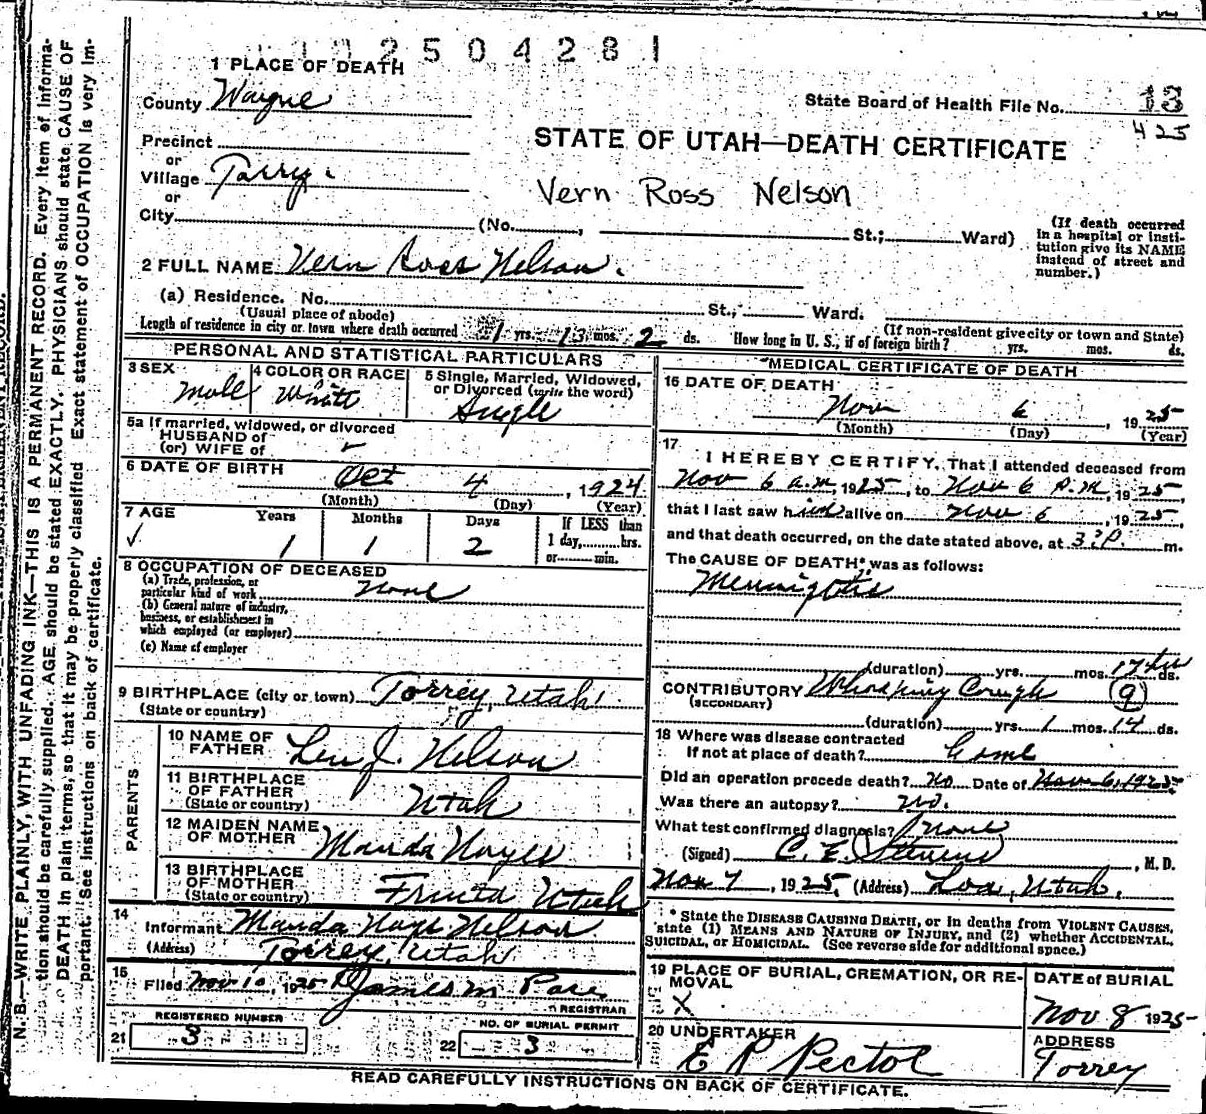 2504281
1 PLACE OF DEATH
County Wayne
State Board of Health File No. 13
425
Precinct
or
Village Torrey.
or
City (No. , St.; Ward)
STATE OF UTAH—DEATH CERTIFICATE
Vern Ross Nelson
(If death occurred in a hospital or institution give its NAME instead of street and number.)
2 FULL NAME Vern Ross Nelson.
(a) Residence. No. St., Ward.
(Usual place of abode) (If non-resident give city or town and State)
Length of residence in city or town where death occurred 1 yrs. 13 mos. 2 ds. How long in U. S., if of foreign birth? yrs. mos. ds.
PERSONAL AND STATISTICAL PARTICULARS
3 SEX Male
4 COLOR OR RACE White
5 Single, Married, Widowed, or Divorced (write the word) Single
5a If married, widowed, or divorced
HUSBAND of
(or) WIFE of
6 DATE OF BIRTH Oct 4, 1924
(Month) (Day) (Year)
7 AGE Years Months Days If LESS than
1 1 2 1 day, hrs.
or min.
8 OCCUPATION OF DECEASED
(a) Trade, profession, or
particular kind of work none
(b) General nature of industry,
business, or establishment in
which employed (or employer)
(c) Name of employer
9 BIRTHPLACE (city or town) Torrey, Utah
(State or country)
PARENTS
10 NAME OF FATHER Len J. Nelson
11 BIRTHPLACE OF FATHER (State or country) Utah
12 MAIDEN NAME OF MOTHER Manda Noyes
13 BIRTHPLACE OF MOTHER (State or country) Fruita Utah
14 Informant Manda Noyes Nelson
(Address) Torrey, Utah
15 Filed Nov 10, 1925 James M Pace
REGISTRAR
21 REGISTERED NUMBER 3
22 NO. OF BURIAL PERMIT 3
MEDICAL CERTIFICATE OF DEATH
16 DATE OF DEATH
Nov 6, 1925
(Month) (Day) (Year)
17 I HEREBY CERTIFY, That I attended deceased from
Nov 6 a.m, 1925, to Nov 6 P.M, 1925,
that I last saw him alive on Nov 6, 1925,
and that death occurred, on the date stated above, at 3 P. m.
The CAUSE OF DEATH* was as follows:
Meningitis
(duration) yrs. mos. 17 hrs ds.
CONTRIBUTORY Whooping Cough (9)
(SECONDARY)
(duration) yrs. 1 mos. 14 ds.
18 Where was disease contracted
If not at place of death? Home
Did an operation precede death? No Date of Nov 6, 1925
Was there an autopsy? no.
What test confirmed diagnosis? none
(Signed) C. E. Stevens, M. D.
Nov 7, 1925 (Address) Loa, Utah.
* State the DISEASE CAUSING DEATH, or in deaths from VIOLENT CAUSES,
state (1) MEANS AND NATURE OF INJURY, and (2) whether ACCIDENTAL,
SUICIDAL, or HOMICIDAL. (See reverse side for additional space.)
19 PLACE OF BURIAL, CREMATION, OR REMOVAL X
DATE of BURIAL
Nov 8 1925
20 UNDERTAKER
E P Pectol
ADDRESS
Torrey
READ CAREFULLY INSTRUCTIONS ON BACK OF CERTIFICATE.
N. B.—WRITE PLAINLY, WITH UNFADING INK—THIS IS A PERMANENT RECORD. Every item of informa-
tion should be carefully supplied. AGE should be stated EXACTLY. PHYSICIANS should state CAUSE OF
DEATH in plain terms, so that it may be properly classified. Exact statement of OCCUPATION is very im-
portant. See Instructions on back of certificate.